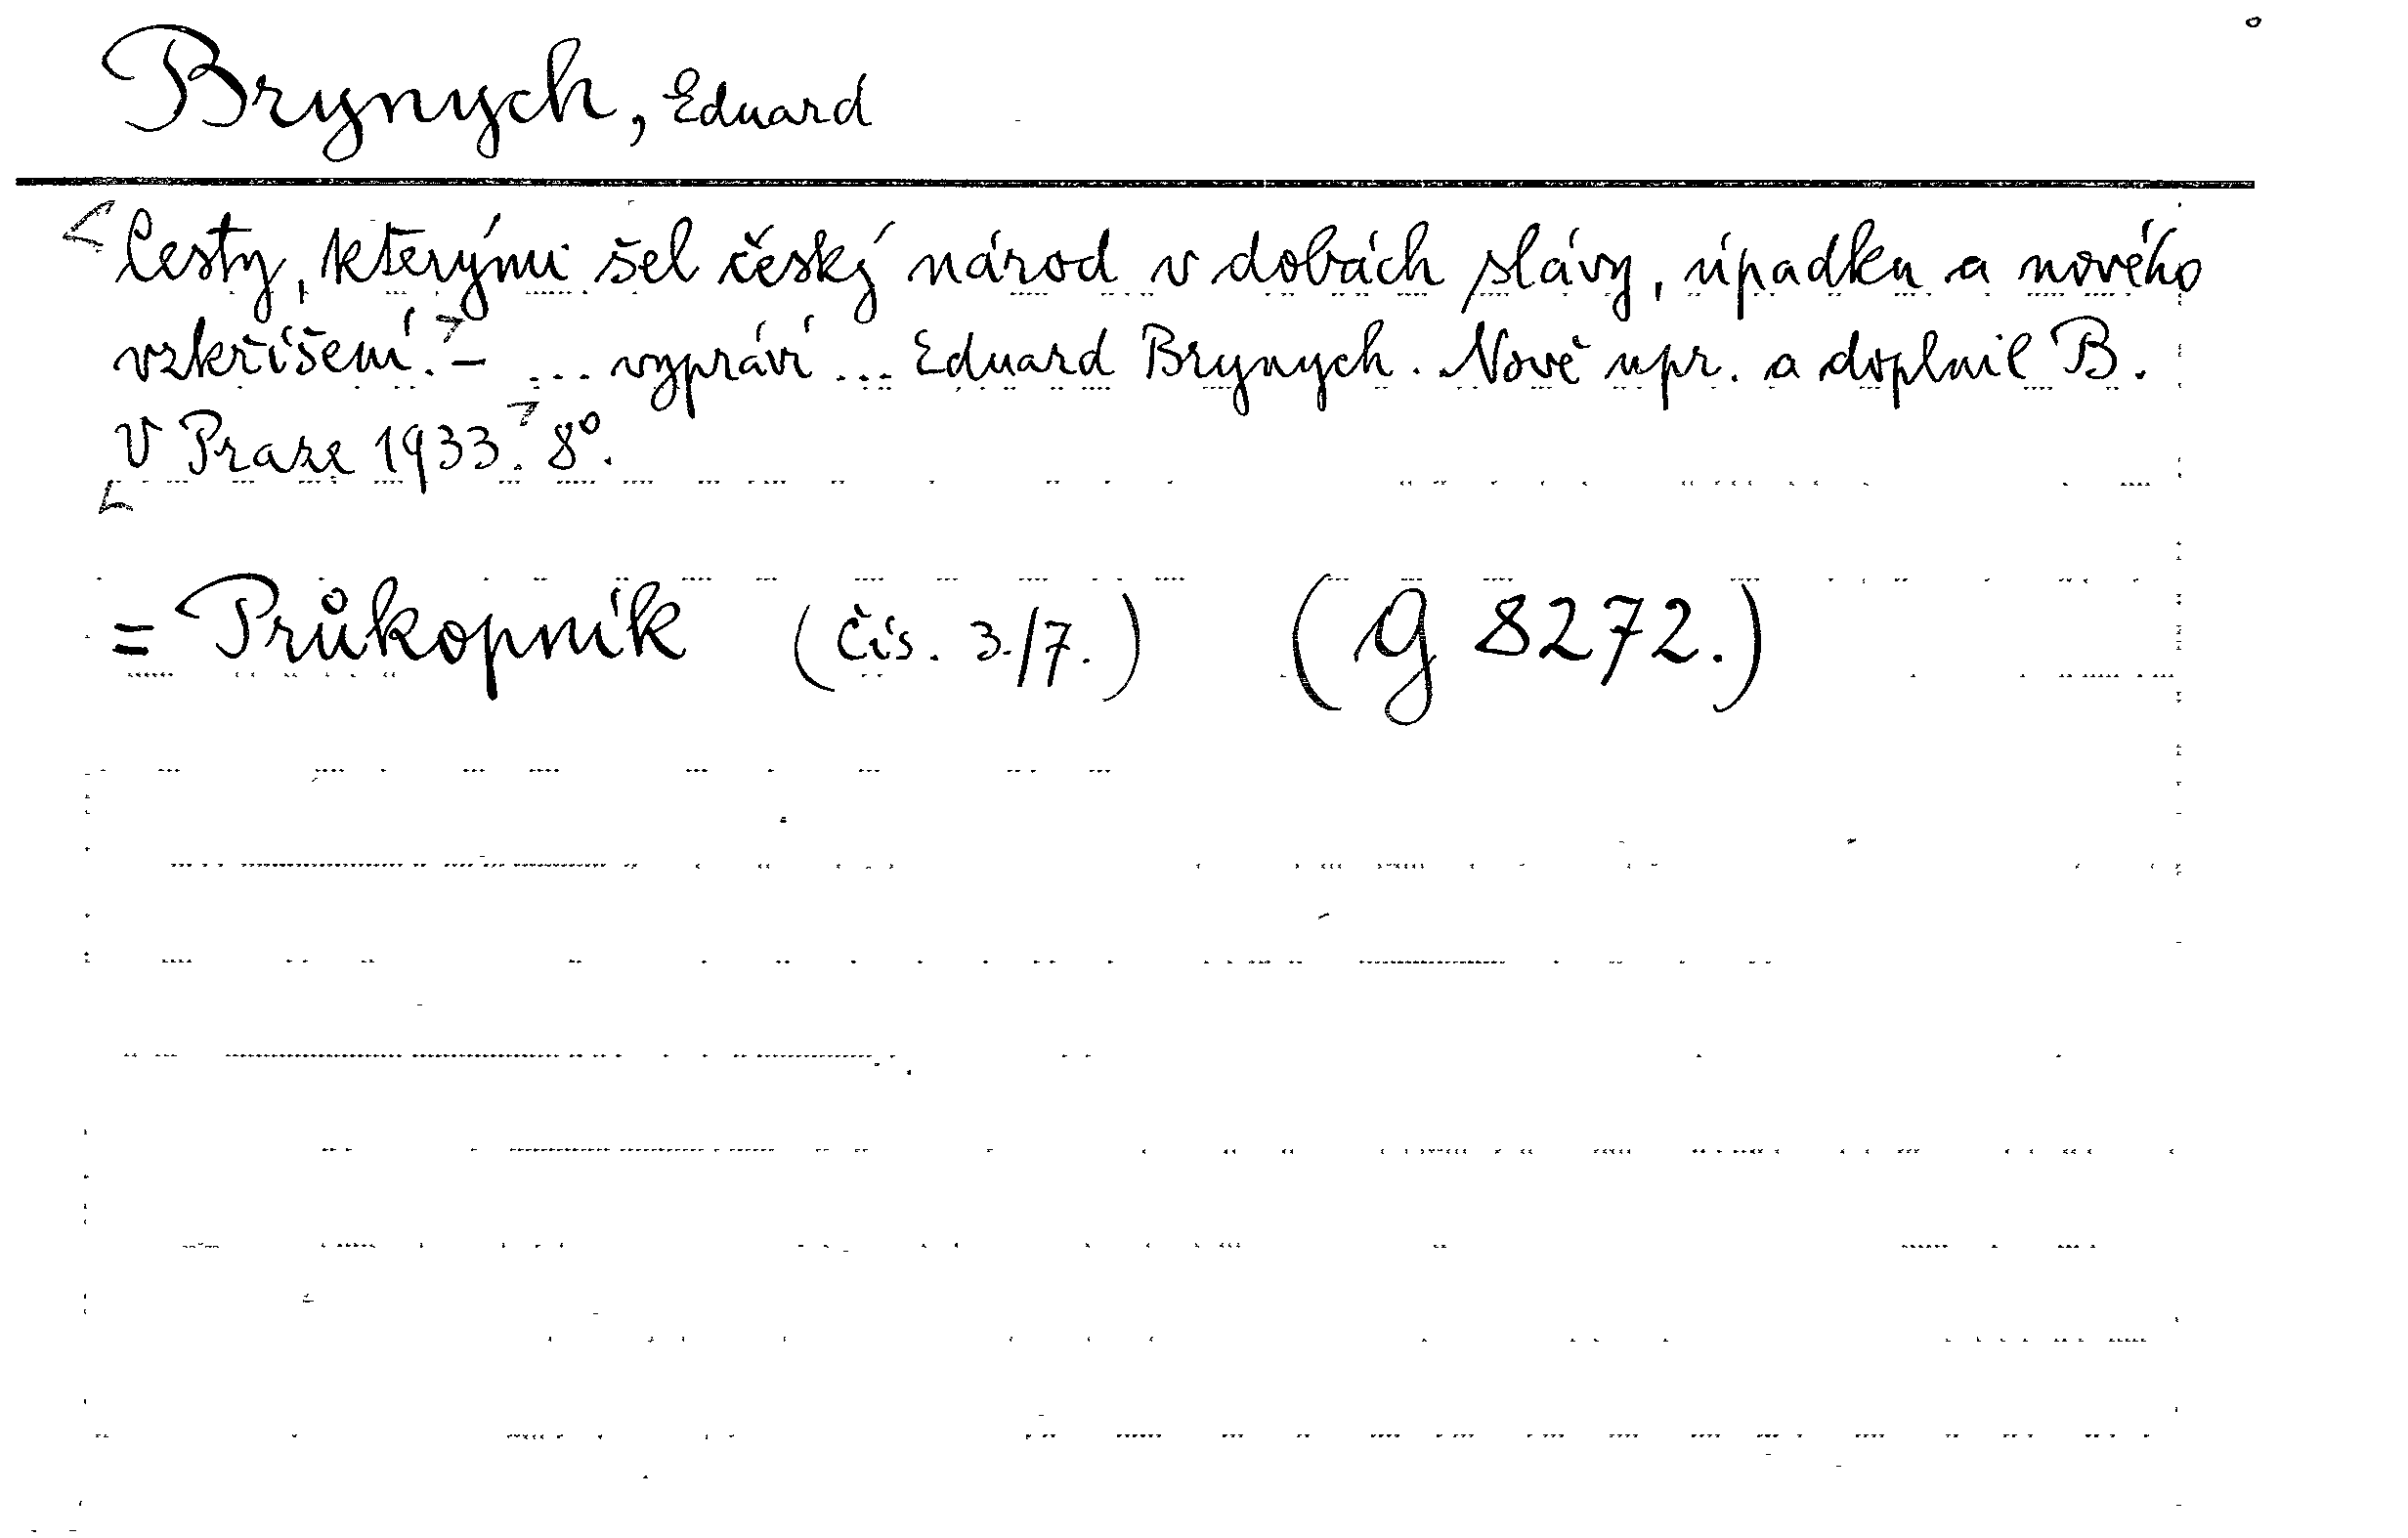 Brynych, Eduard
Cesty, kterými šel český národ v dobách slávy, úpadku a nového
vzkříšení. – ... vypráví ... Eduard Brynych. Nově upr. a doplnil B.
V Praze 1933. 8°.
= Průkopník (Čís. 3./7.) (G 8272.)